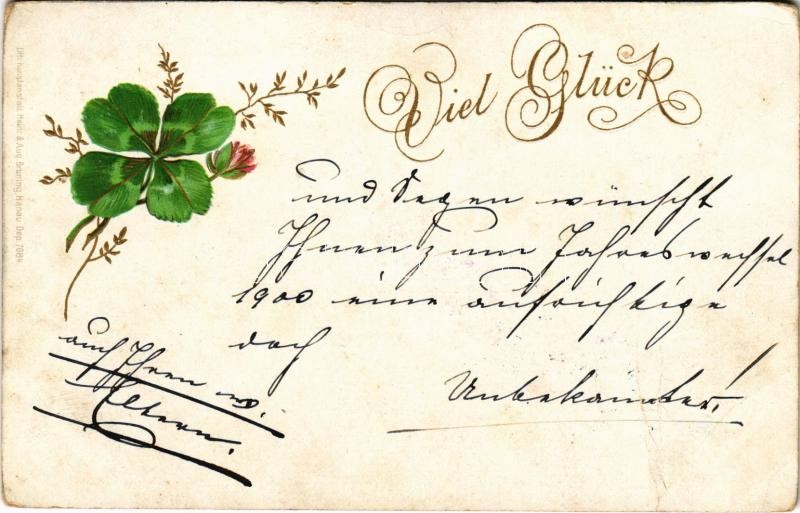 Viel Glück
und Segen wünscht
Ihnen zum Jahreswechsel
1900 eine aufrichtige
doch
Unbekannte!
auch Ihren w.
Eltern.
Lith. Kunstanstalt Heinr. & Aug. Brüning, Hanau Dep. 7084